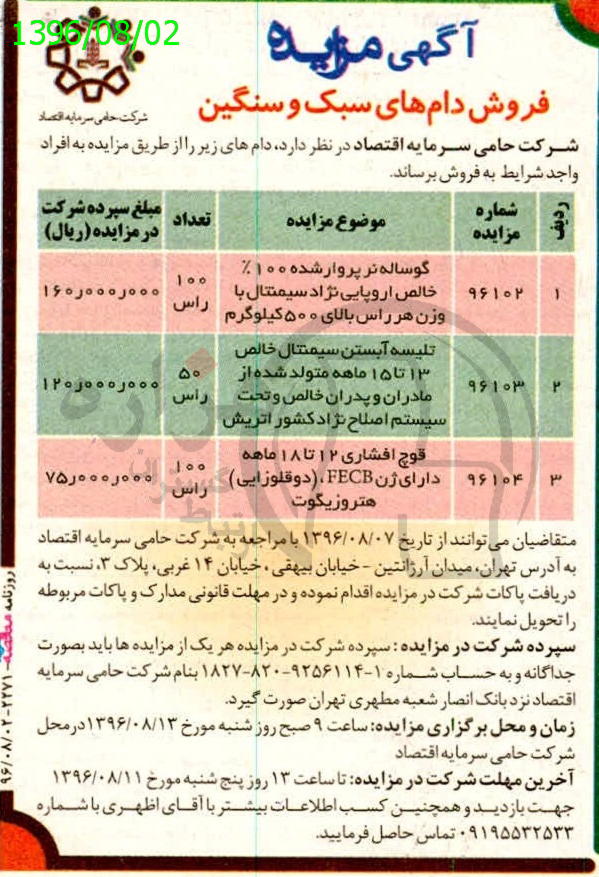 1396/08/02
آگهی مزایده
شرکت حامی سرمایه اقتصاد
فروش دام‌های سبک و سنگین
شرکت حامی سرمایه اقتصاد در نظر دارد، دام های زیر را از طریق مزایده به افراد
واجد شرایط به فروش برساند.
ردیف شماره مزایده موضوع مزایده تعداد مبلغ سپرده شرکت در مزایده (ریال)
۱ ۹۶۱۰۲ گوساله نر پروار شده ۱۰۰٪ ۱۰۰ راس ۱۶۰ر۰۰۰ر۰۰۰
خالص اروپایی نژاد سیمنتال با
وزن هر راس بالای ۵۰۰ کیلوگرم
۲ ۹۶۱۰۳ تلیسه آبستن سیمنتال خالص ۵۰ راس ۱۲۰ر۰۰۰ر۰۰۰
۱۳ تا ۱۵ ماهه متولد شده از
مادران و پدران خالص و تحت
سیستم اصلاح نژاد کشور اتریش
۳ ۹۶۱۰۴ قوچ افشاری ۱۲ تا ۱۸ ماهه ۱۰۰ راس ۷۵ر۰۰۰ر۰۰۰
دارای ژن FECB، (دوقلوزایی)
هتروزیگوت
متقاضیان می توانند از تاریخ ۱۳۹۶/۰۸/۰۷ با مراجعه به شرکت حامی سرمایه اقتصاد
به آدرس تهران، میدان آرژانتین - خیابان بیهقی، خیابان ۱۴ غربی، پلاک ۳، نسبت به
دریافت پاکات شرکت در مزایده اقدام نموده و در مهلت قانونی مدارک و پاکات مربوطه
را تحویل نمایند.
سپرده شرکت در مزایده: سپرده شرکت در مزایده هر یک از مزایده ها باید بصورت
جداگانه و به حساب شماره ۱-۹۲۵۶۱۱۴-۸۲۰-۱۸۲۷ بنام شرکت حامی سرمایه
اقتصاد نزد بانک انصار شعبه مطهری تهران صورت گیرد.
زمان و محل برگزاری مزایده: ساعت ۹ صبح روز شنبه مورخ ۱۳۹۶/۰۸/۱۳ در محل
شرکت حامی سرمایه اقتصاد
آخرین مهلت شرکت در مزایده: تا ساعت ۱۳ روز پنج شنبه مورخ ۱۳۹۶/۰۸/۱۱
جهت بازدید و همچنین کسب اطلاعات بیشتر با آقای اظهری با شماره
۰۹۱۹۵۵۳۲۵۳۳ تماس حاصل فرمایید.
روزنامه
۹۶/۰۸/۰۲-۲۲۷۱